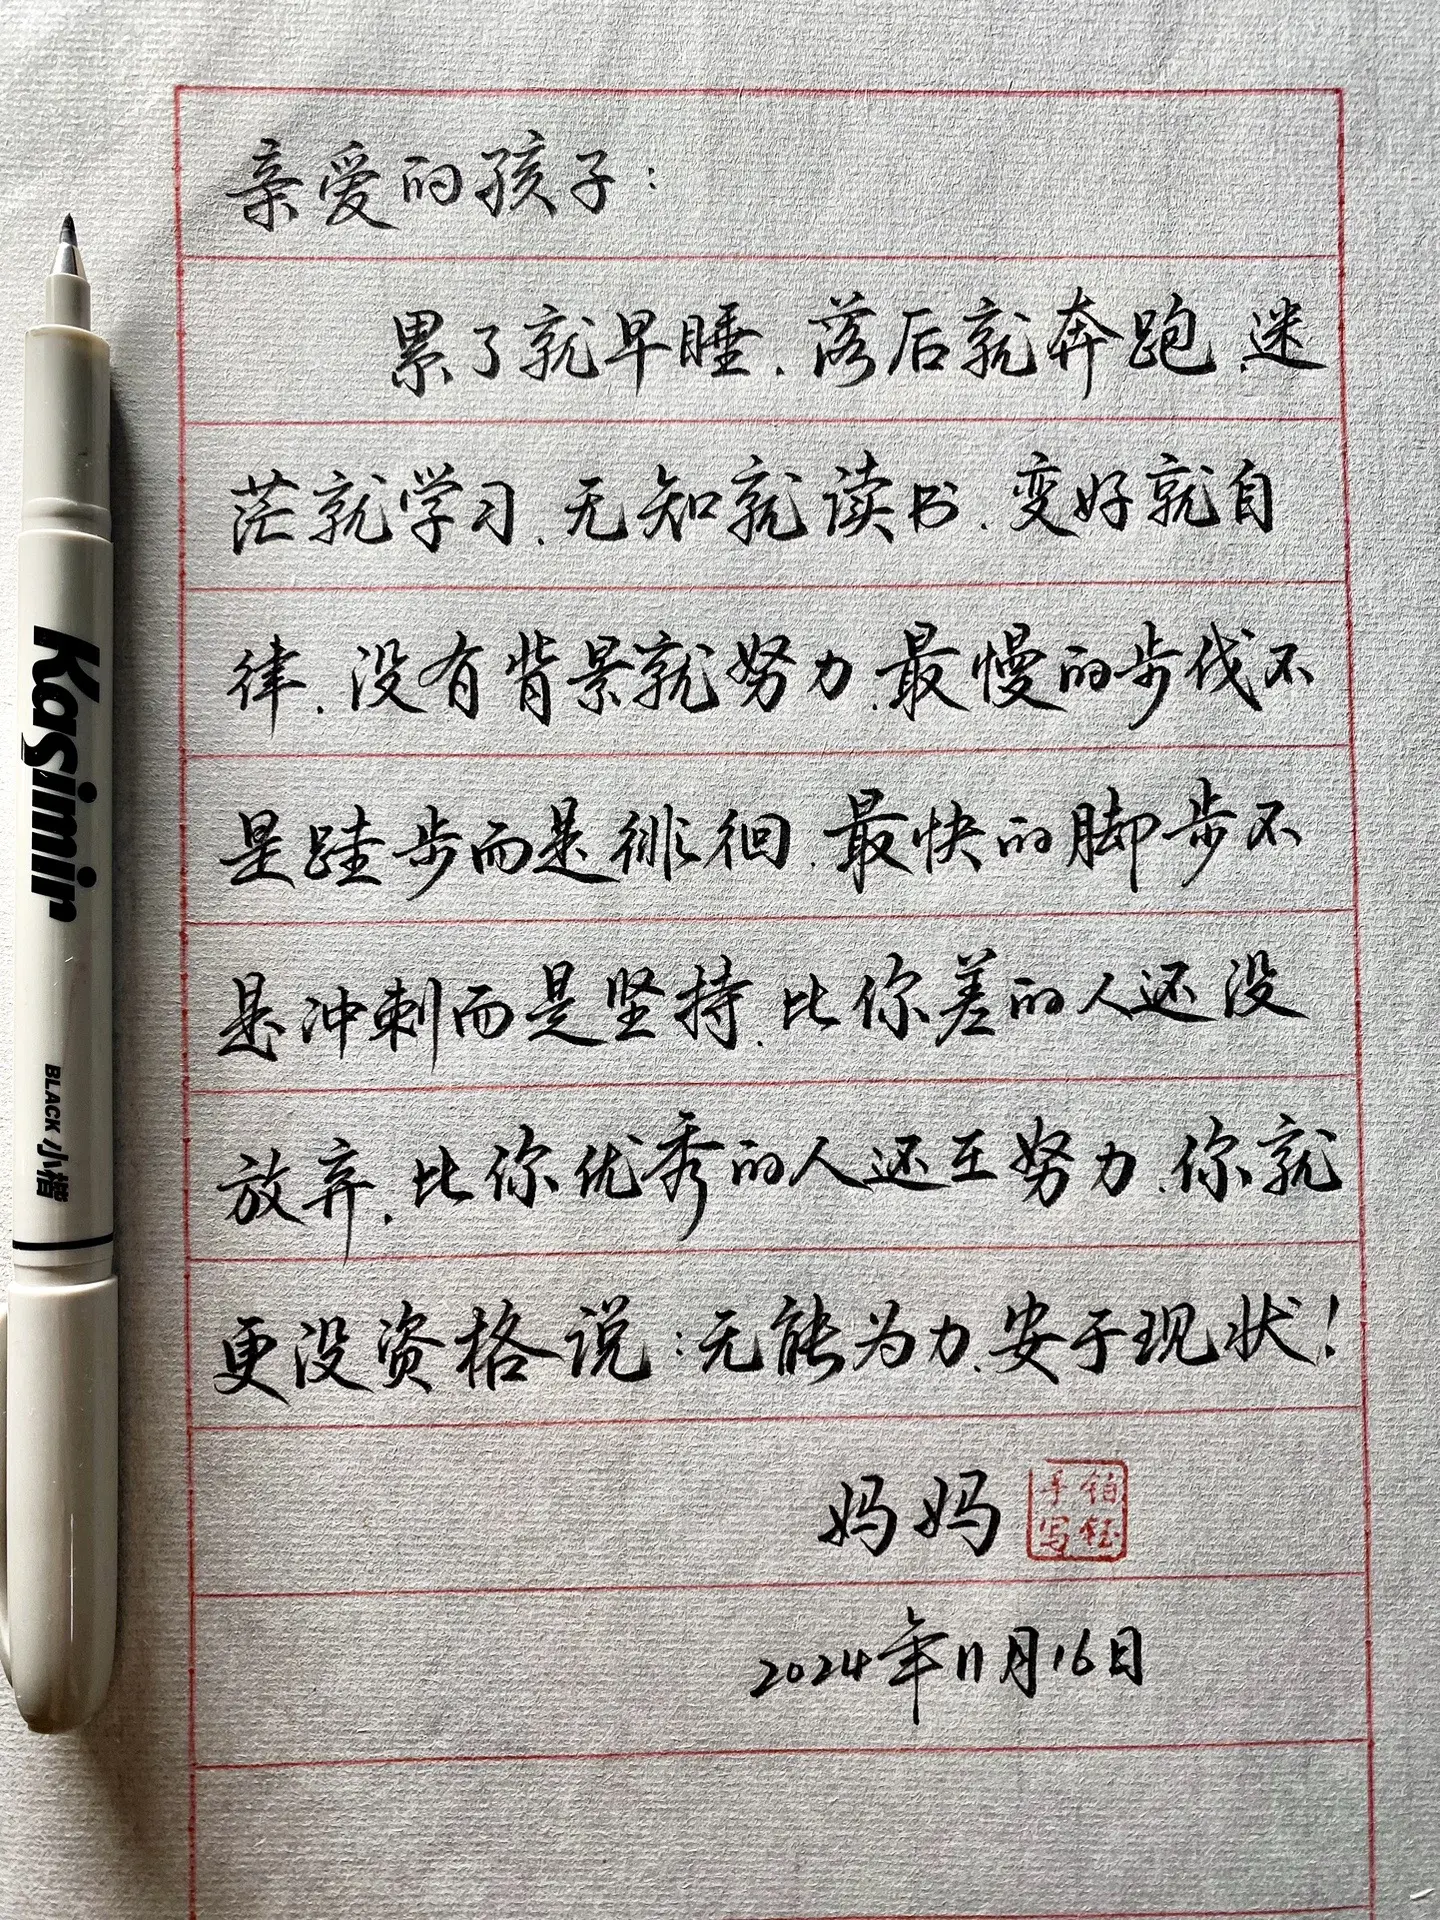 亲爱的孩子:
累了就早睡.落后就奔跑.迷
茫就学习.无知就读书.变好就自
律.没有背景就努力.最慢的步伐不
是跬步而是徘徊.最快的脚步不
是冲刺而是坚持.比你差的人还没
放弃.比你优秀的人还在努力.你就
更没资格说:无能为力.安于现状!
妈妈
伯钰
手写
2024年11月16日
Kasimir
BLACK 小楷